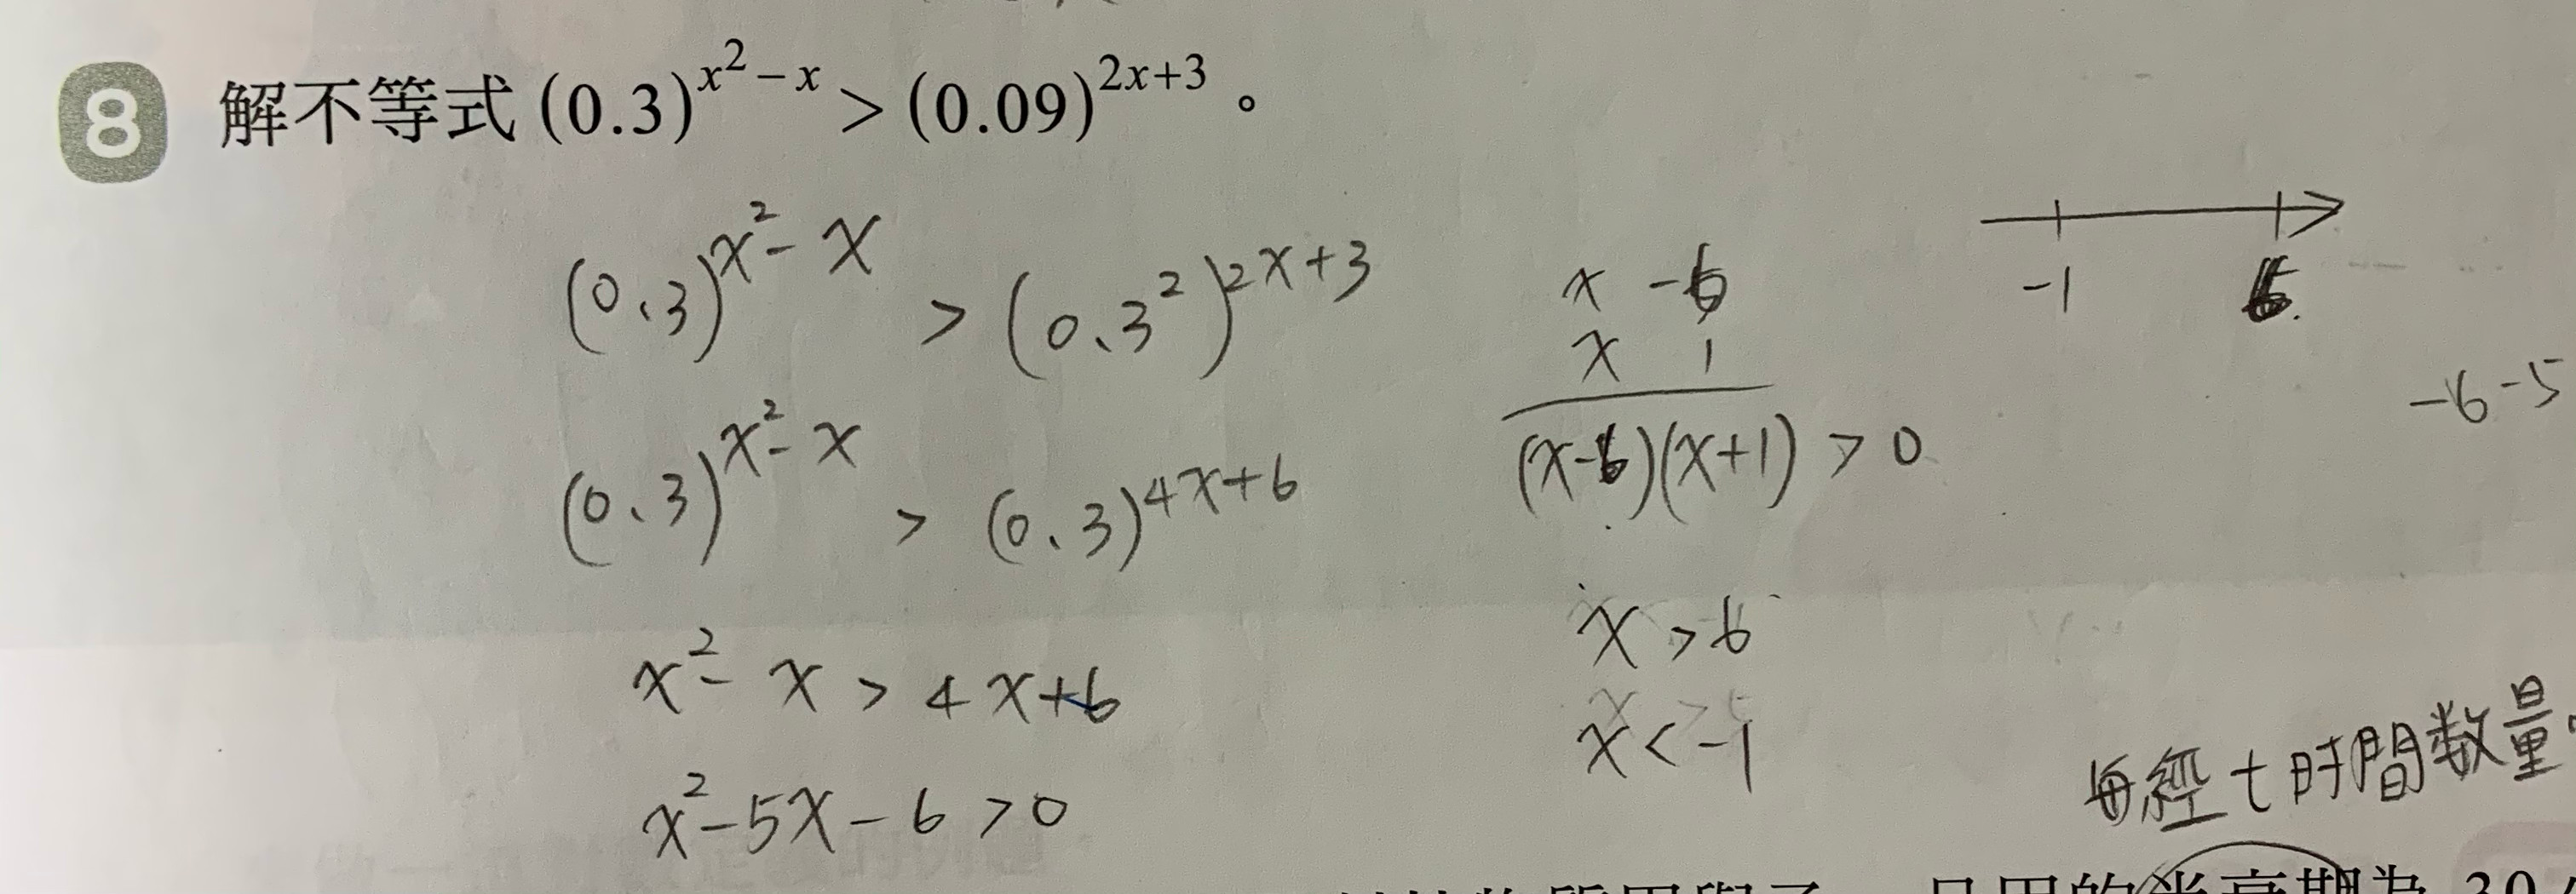 8 解不等式 (0.3)^{x²-x} > (0.09)^{2x+3}。
(0.3)^{x²-x} > (0.3²)^{2x+3}
(0.3)^{x²-x} > (0.3)^{4x+6}
x²-x > 4x+6
x²-5x-6 > 0
x -6
x 1
(x-6)(x+1) > 0
x > 6
x < -1
-1 6
-6 -5
每經t時間数量